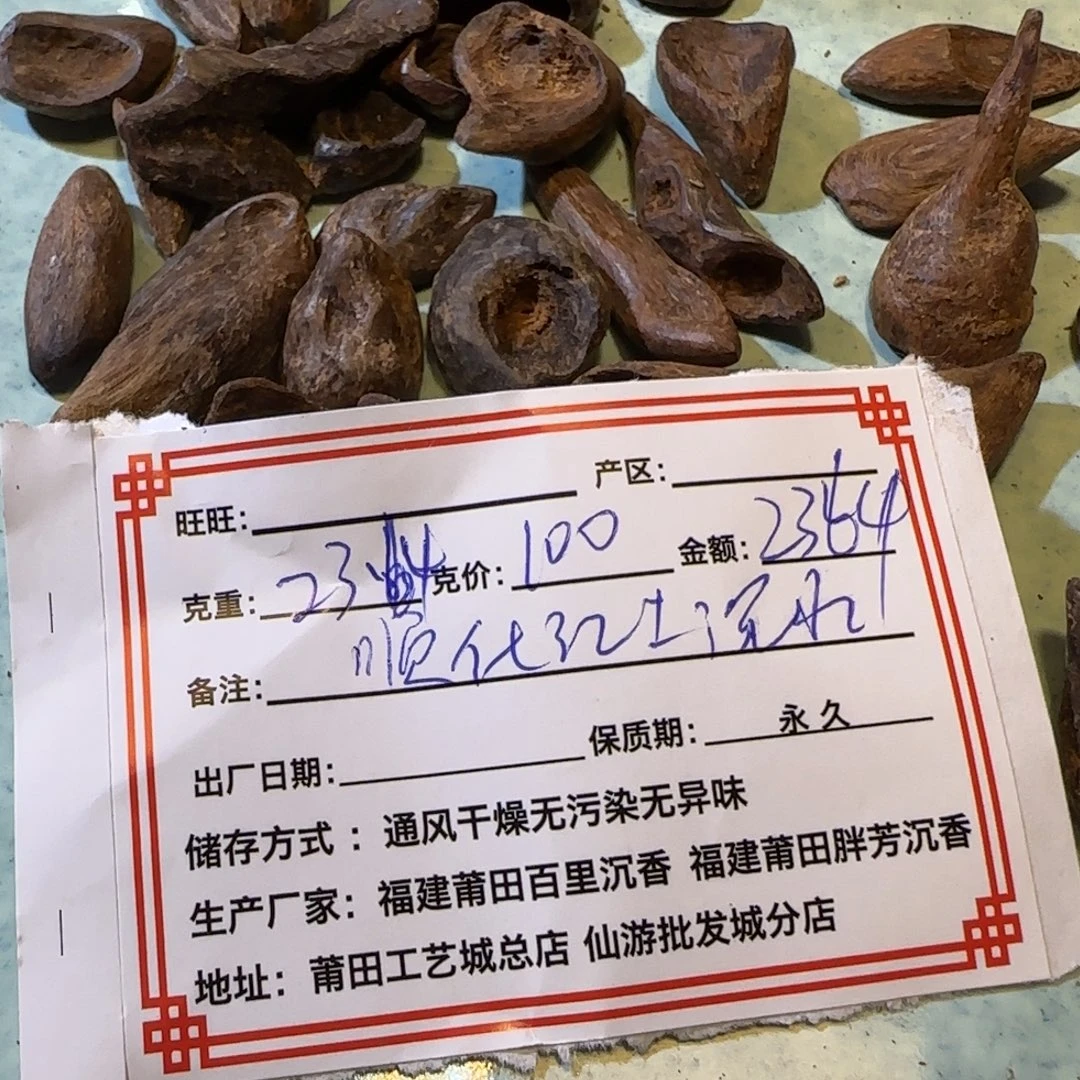 旺旺： 产区：
克重：23.64 克价：100 金额：2364
备注：顺化红土沉水
出厂日期： 保质期：永久
储存方式：通风干燥无污染无异味
生产厂家：福建莆田百里沉香 福建莆田胖芳沉香
地址：莆田工艺城总店 仙游批发城分店